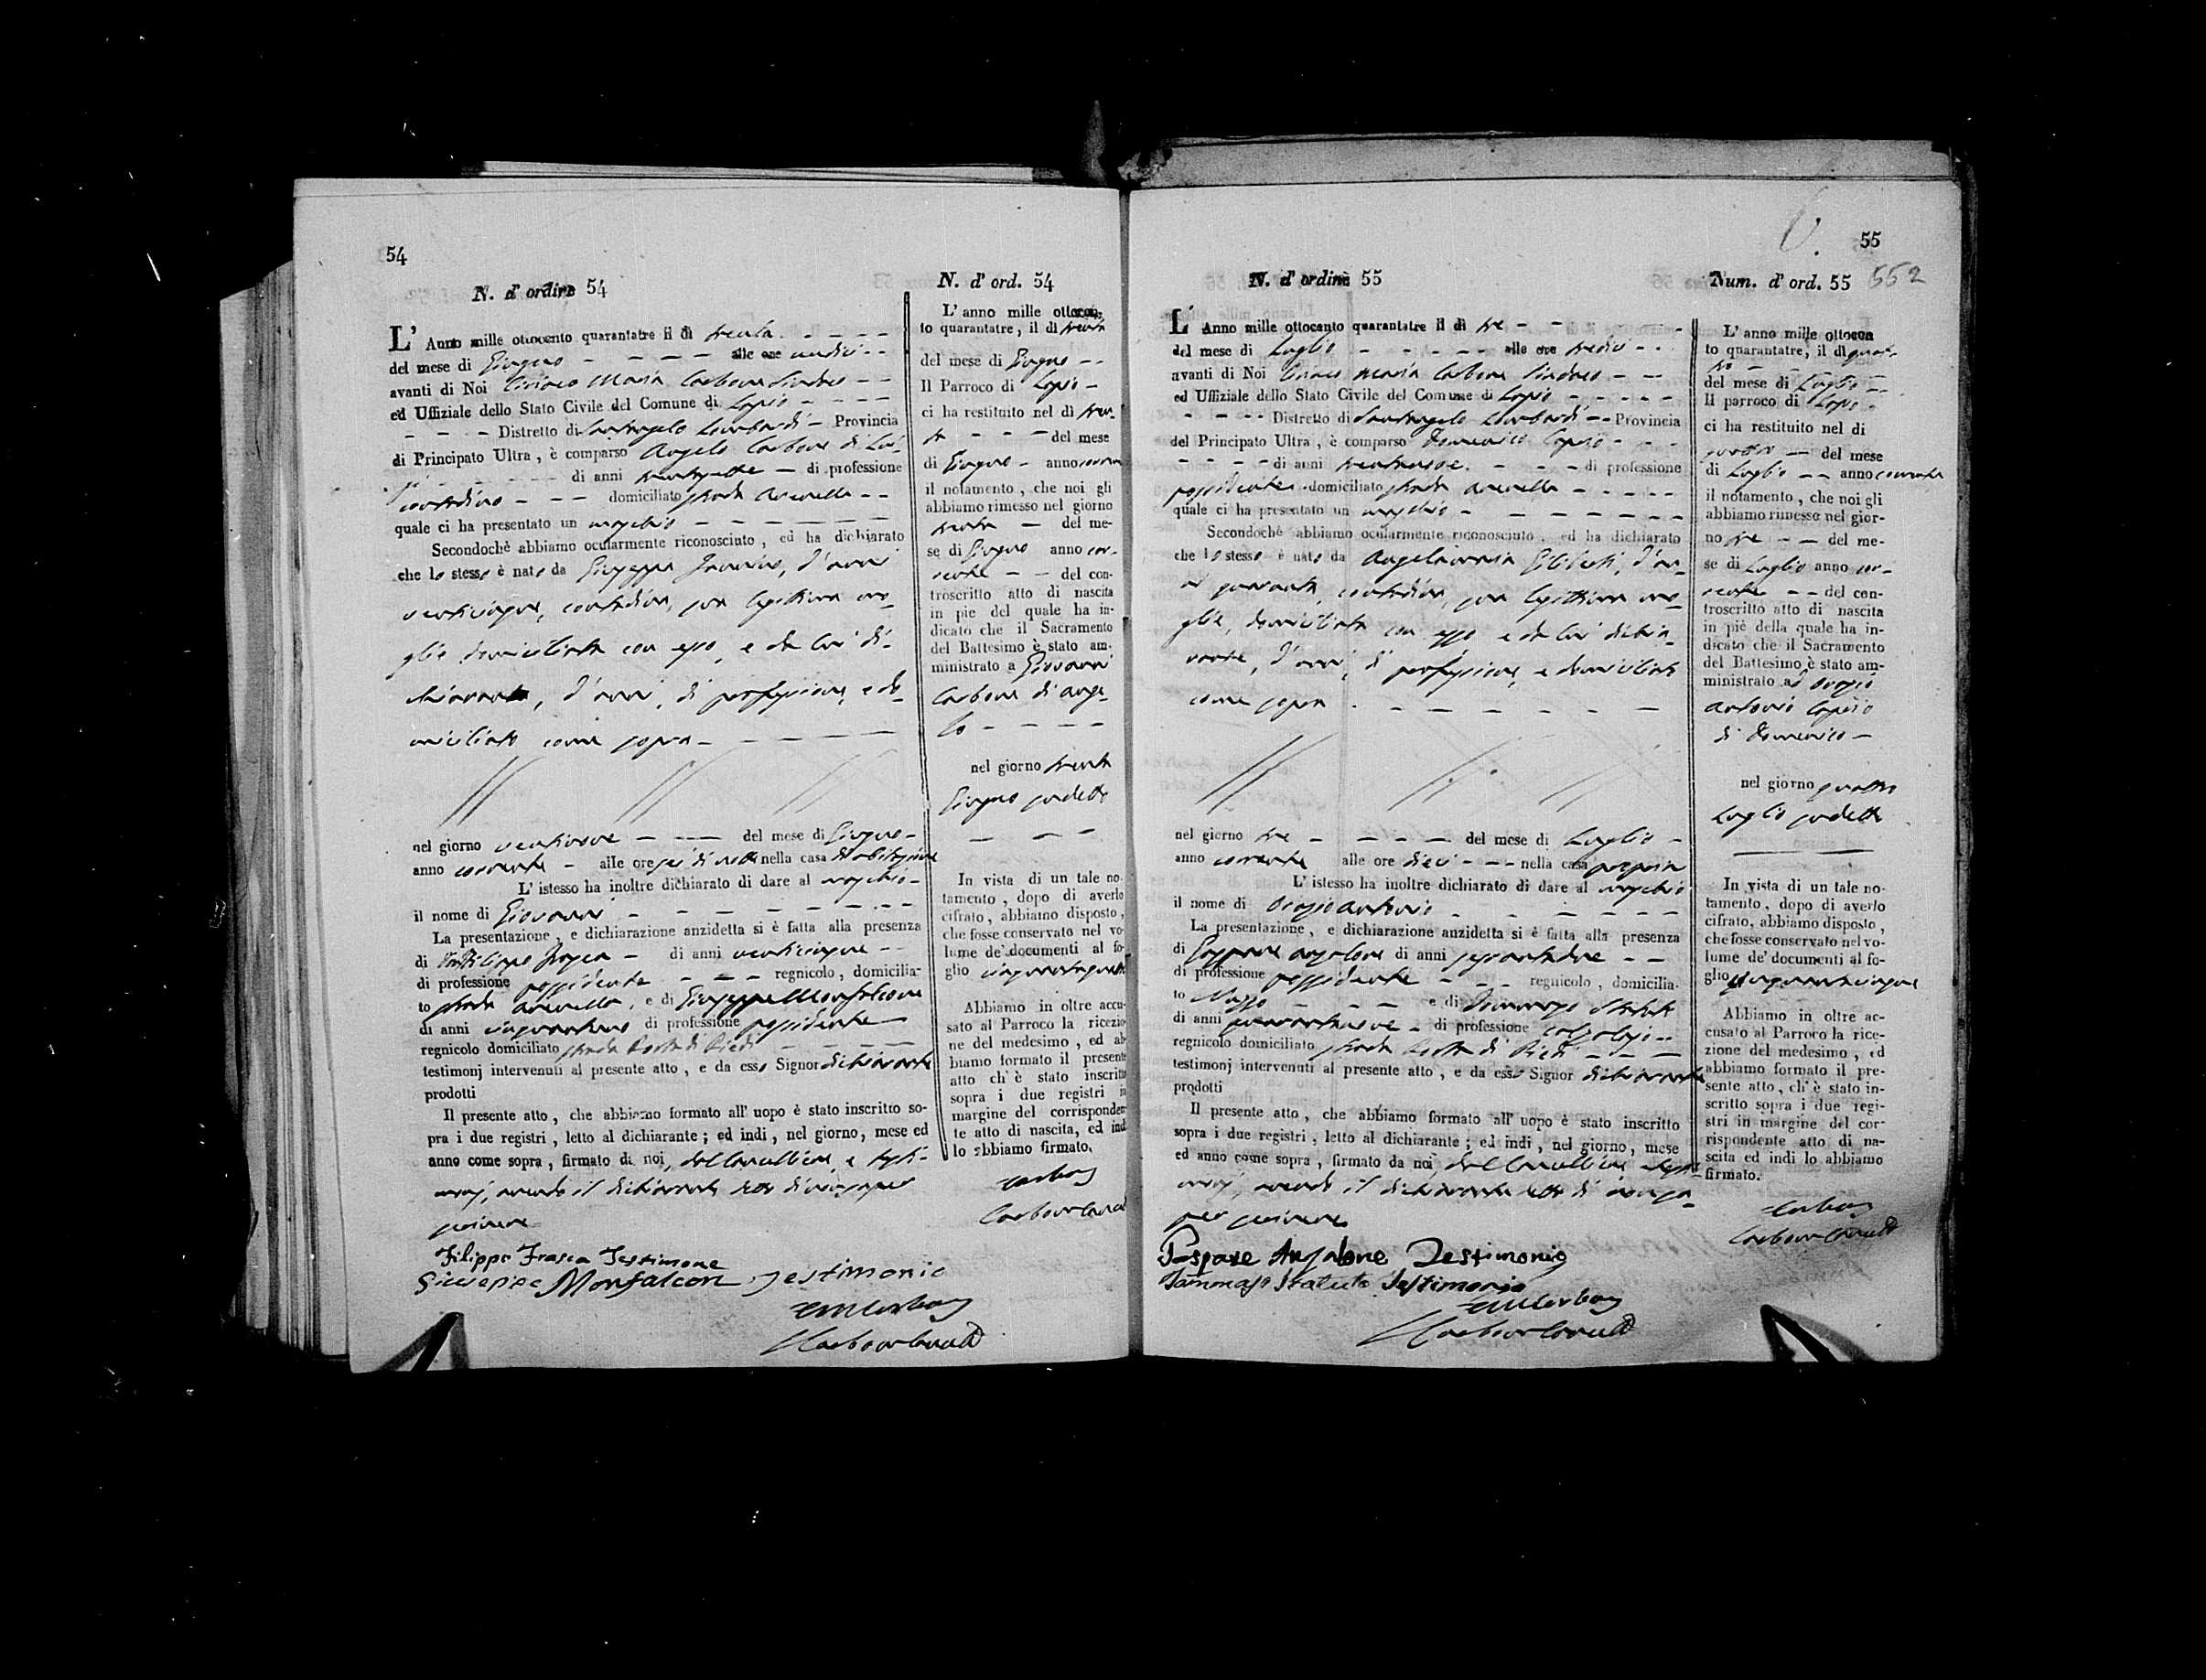 54
N. d' ordine 54
L' Anno mille ottocento quarantatre il dì trenta
del mese di Giugno alle ore undici
avanti di Noi Ciriaco Maria Carbone Sindaco
ed Uffiziale dello Stato Civile del Comune di Lapio
Distretto di Santangelo Lombardi Provincia
di Principato Ultra , è comparso Angelo Carbone di
di anni trentasette di professione
contadino domiciliato strada Arenella
quale ci ha presentato un maschio
Secondochè abbiamo ocularmente riconosciuto , ed ha dichiarato
che lo stesso è nato da Giuseppa Iannino, d'anni
venticinque, contadina, sua legittima mo-
glie domiciliata con esso, e da lui di-
chiarante, d'anni, di professione, e do-
miciliato come sopra
nel giorno ventinove del mese di Giugno
anno corrente alle ore sei di notte nella casa di abitazione
L' istesso ha inoltre dichiarato di dare al maschio
il nome di Giovanni
La presentazione , e dichiarazione anzidetta si è fatta alla presenza
di Filippo Frasca di anni venticinque
di professione possidente regnicolo , domicilia-
to strada Arenella, e di Giuseppe Monfalcone
di anni cinquantuno di professione possidente
regnicolo domiciliato strada Porta di Piedi
testimonj intervenuti al presente atto , e da esso Signor dichiarante
prodotti
Il presente atto , che abbiamo formato all' uopo è stato inscritto so-
pra i due registri , letto al dichiarante ; ed indi , nel giorno, mese ed
anno come sopra , firmato da noi, dal Cancelliere, e testi-
monj, avendo il dichiarante detto di non saper
scrivere
Filippo Frasca Testimone
Giuseppe Monfalcon Testimonio
N. d' ord. 54
L' anno mille ottocen-
to quarantatre , il dì trenta
del mese di Giugno
Il Parroco di Lapio
ci ha restituito nel dì tren-
ta del mese
di Giugno anno corrente
il notamento , che noi gli
abbiamo rimesso nel giorno
trenta del me-
se di Giugno anno cor-
rente del con-
troscritto atto di nascita
in piè del quale ha in-
dicato che il Sacramento
del Battesimo è stato am-
ministrato a Giovanni
Carbone di Ange-
lo
nel giorno trenta
Giugno sudetto
In vista di un tale no-
tamento , dopo di averlo
cifrato , abbiamo disposto ,
che fosse conservato nel vo-
lume de' documenti al fo-
glio cinquantaquattro
Abbiamo in oltre accu-
sato al Parroco la ricezio-
ne del medesimo , ed ab-
biamo formato il presente
atto ch' è stato inscritto
sopra i due registri in
margine del corrisponden-
te atto di nascita, ed indi
lo abbiamo firmato.
55
552
N. d' ordine 55
L' Anno mille ottocento quarantatre il dì tre
del mese di Luglio alle ore tredici
avanti di Noi Ciriaco Maria Carbone Sindaco
ed Uffiziale dello Stato Civile del Comune di Lapio
Distretto di Santangelo Lombardi Provincia
del Principato Ultra , è comparso Domenico Caposo
di anni trentanove di professione
possidente domiciliato strada Arenella
quale ci ha presentato un maschio
Secondochè abbiamo ocularmente riconosciuto , ed ha dichiarato
che lo stesso è nato da Angelamaria Giliberti, d'an-
ni quaranta, contadina, sua legittima mo-
glie, domiciliata con esso e da lui dichia-
rante, d'anni, di professione, e domiciliato
come sopra
nel giorno tre del mese di Luglio
anno corrente alle ore dieci nella casa propria
L' istesso ha inoltre dichiarato di dare al maschio
il nome di Orazio Antonio
La presentazione , e dichiarazione anzidetta si è fatta alla presenza
di Gaspare di anni sessantadue
di professione possidente regnicolo , domicilia-
to e di Tommaso Statuto
di anni quarantanove di professione calzolajo
regnicolo domiciliato strada Porta di Piedi
testimonj intervenuti al presente atto , e da esso Signor dichiarante
prodotti
Il presente atto , che abbiamo formato all' uopo è stato inscritto
sopra i due registri , letto al dichiarante ; ed indi , nel giorno, mese
ed anno come sopra , firmato da noi, dal Cancelliere e testi-
monj, avendo il dichiarante detto di non sa-
per scrivere
Testimonio
Tommaso Statuto Testimonio
Num. d' ord. 55
L' anno mille ottocen
to quarantatre, il dì quat-
tro
del mese di Luglio
Il parroco di Lapio
ci ha restituito nel dì
quattro del mese
di Luglio anno corrente
il notamento , che noi gli
abbiamo rimesso nel gior-
no tre del me-
se di Luglio anno cor-
rente del con-
troscritto atto di nascita
in piè della quale ha in-
dicato che il Sacramento
del Battesimo è stato am-
ministrato ad Orazio
Antonio Caposo
di Domenico
nel giorno quattro
Luglio sudetto
In vista di un tale no-
tamento , dopo di averlo
cifrato, abbiamo disposto ,
che fosse conservato nel vo-
lume de' documenti al fo-
glio cinquantacinque
Abbiamo in oltre ac-
cusato al Parroco la rice-
zione del medesimo , ed
abbiamo formato il pre-
sente atto, ch' è stato in-
scritto sopra i due regi-
stri in margine del cor-
rispondente atto di na-
scita ed indi lo abbiamo
firmato.